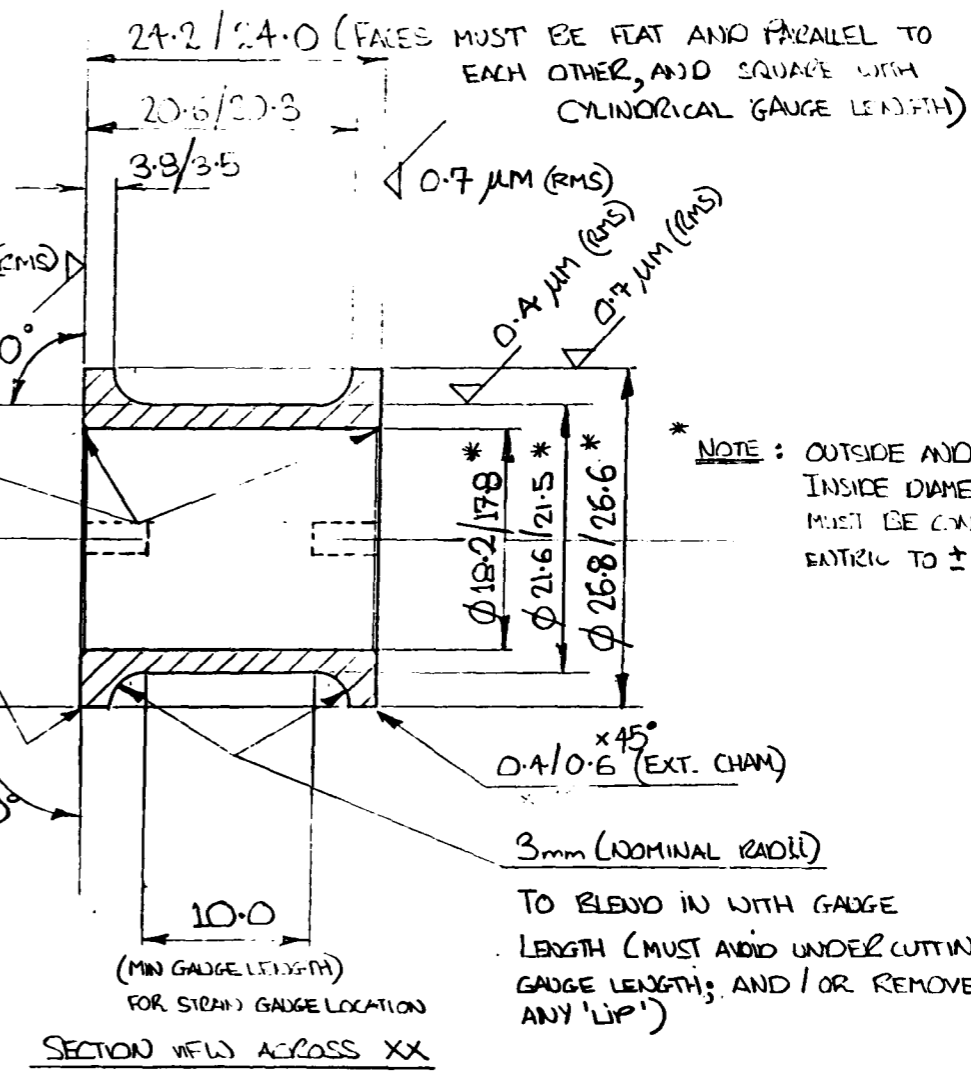 24.2 / 24.0 (FACES MUST BE FLAT AND PARALLEL TO
EACH OTHER, AND SQUARE WITH
CYLINDRICAL GAUGE LENGTH)
20.6/20.3
3.8/3.5
0.7 µM (RMS)
(RMS)
0.4 µM (RMS)
0.7 µM (RMS)
0°
Ø 18.2/17.8 *
Ø 21.6/21.5 *
Ø 26.8/26.6 *
* NOTE : OUTSIDE AND
INSIDE DIAME
MUST BE CON
ENTRIC TO ±
0.4/0.6 ×45° (EXT. CHAM)
0°
3mm (NOMINAL RADII)
TO BLEND IN WITH GAUGE
LENGTH (MUST AVOID UNDERCUTTIN
GAUGE LENGTH; AND / OR REMOVE
ANY 'LIP')
10.0
(MIN GAUGE LENGTH)
FOR STRAIN GAUGE LOCATION
SECTION VIEW ACROSS XX